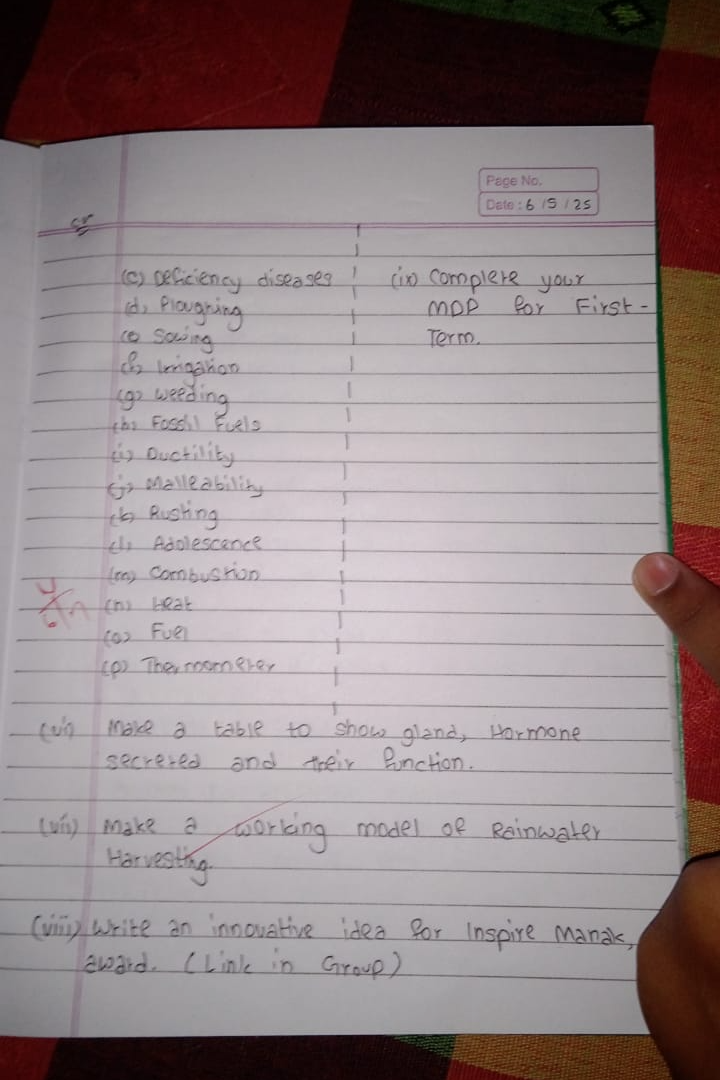 Page No.
Date : 6 / 5 / 25
(c) Deficiency diseases
(d) Ploughing
(e) Sowing
(f) Irrigation
(g) Weeding
(h) Fossil Fuels
(i) Ductility
(j) Malleability
(k) Rusting
(l) Adolescence
(m) Combustion
(n) Heat
(o) Fuel
(p) Thermometer
(ix) Complete your
MDP for First-
Term.
(vi) Make a table to show gland, Hormone
secreted and their function.
(vii) Make a working model of Rainwater
Harvesting.
(viii) Write an innovative idea for Inspire Manak,
award. (Link in Group)